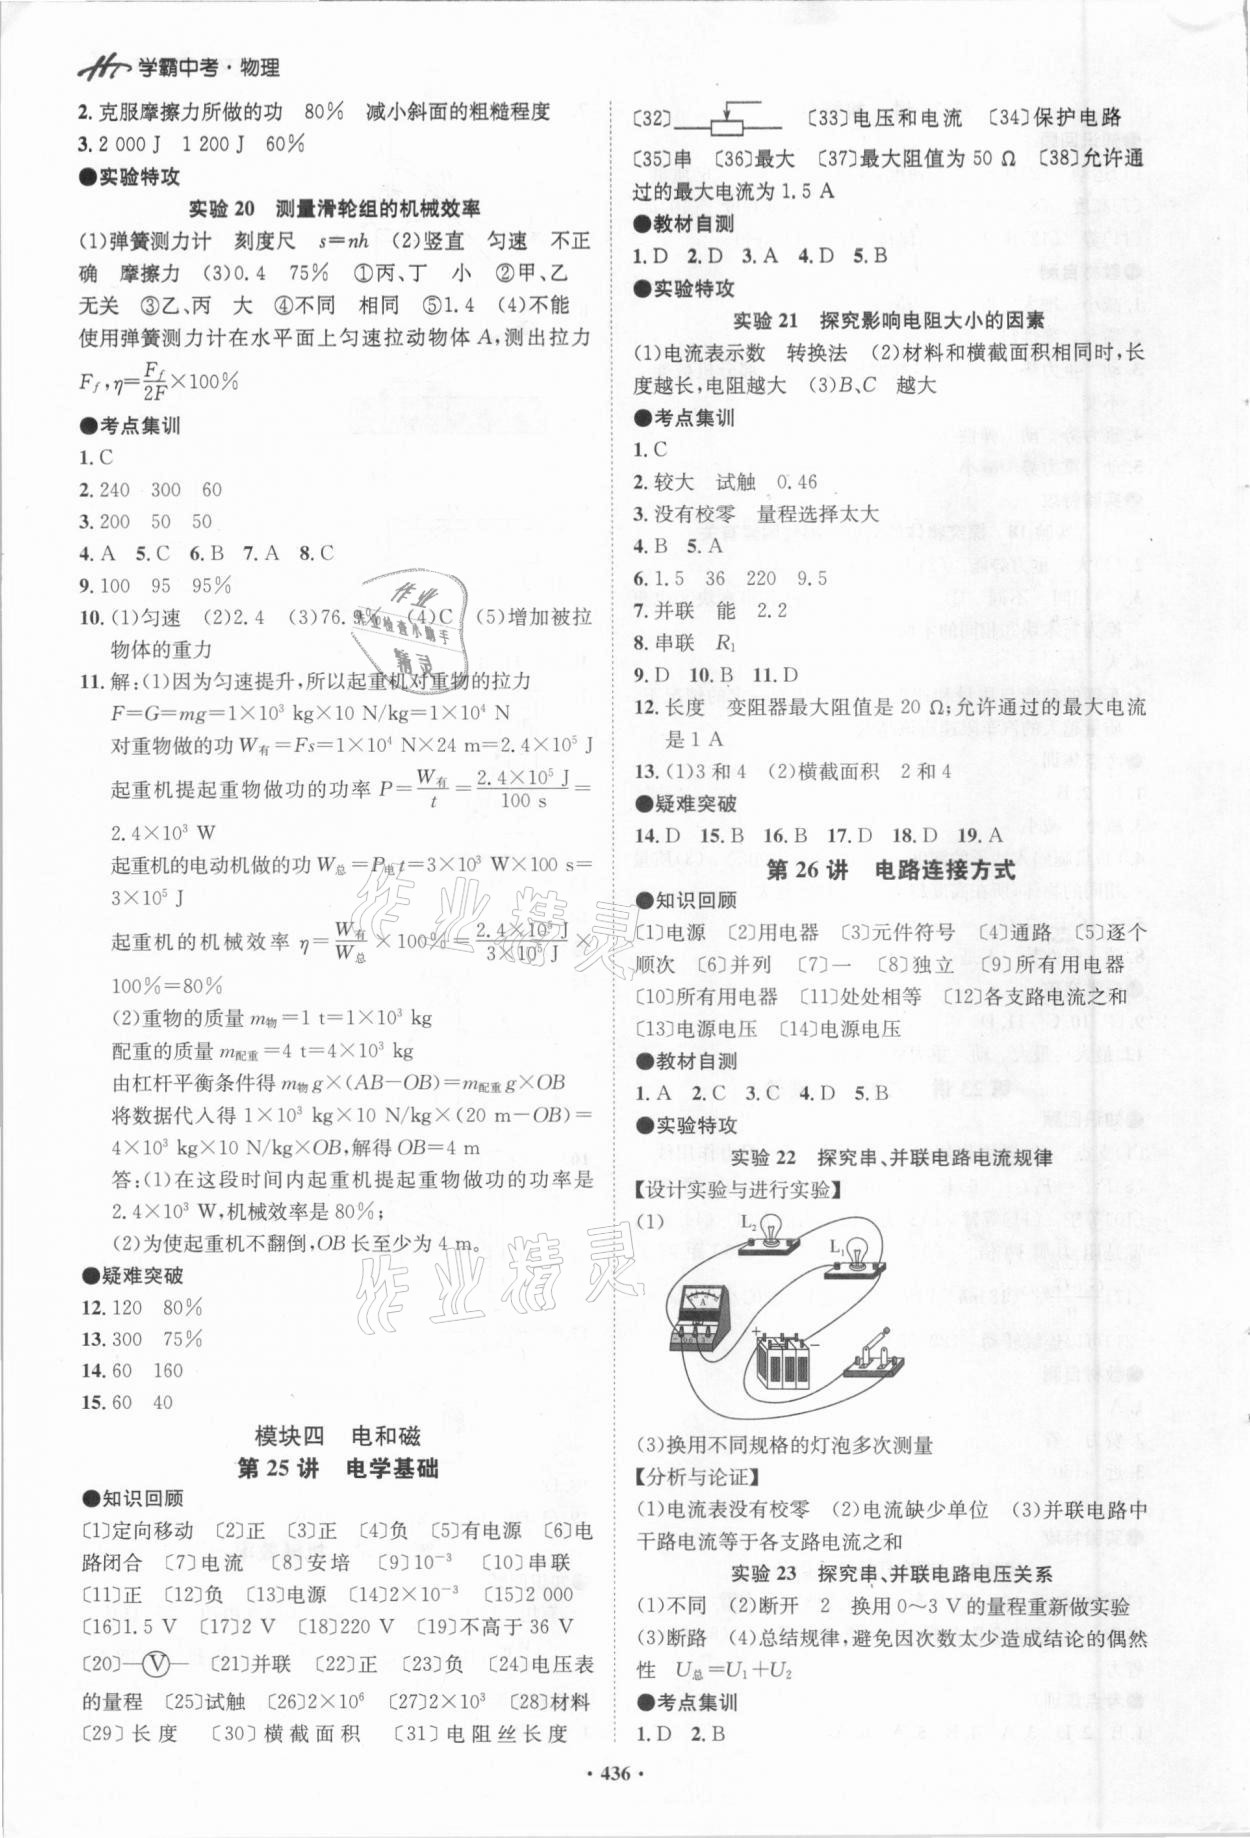 学霸中考·物理
2.克服摩擦力所做的功 80% 减小斜面的粗糙程度
3.2 000 J 1 200 J 60%
●实验特攻
实验 20 测量滑轮组的机械效率
(1)弹簧测力计 刻度尺 s=nh (2)竖直 匀速 不正
确 摩擦力 (3)0.4 75% ①丙、丁 小 ②甲、乙
无关 ③乙、丙 大 ④不同 相同 ⑤1.4 (4)不能
使用弹簧测力计在水平面上匀速拉动物体 A,测出拉力
F_f,η=F_f/2F×100%
●考点集训
1.C
2.240 300 60
3.200 50 50
4.A 5.C 6.B 7.A 8.C
9.100 95 95%
10.(1)匀速 (2)2.4 (3)76.9% (4)C (5)增加被拉
物体的重力
11.解:(1)因为匀速提升,所以起重机对重物的拉力
F=G=mg=1×10³ kg×10 N/kg=1×10⁴ N
对重物做的功 W有=Fs=1×10⁴ N×24 m=2.4×10⁵ J
起重机提起重物做功的功率 P=W有/t=2.4×10⁵ J/100 s=
2.4×10³ W
起重机的电动机做的功 W总=P电t=3×10³ W×100 s=
3×10⁵ J
起重机的机械效率 η=W有/W总×100%=2.4×10⁵ J/3×10⁵ J×
100%=80%
(2)重物的质量 m物=1 t=1×10³ kg
配重的质量 m配重=4 t=4×10³ kg
由杠杆平衡条件得 m物g×(AB-OB)=m配重g×OB
将数据代人得 1×10³ kg×10 N/kg×(20 m-OB)=
4×10³ kg×10 N/kg×OB,解得 OB=4 m
答:(1)在这段时间内起重机提起重物做功的功率是
2.4×10³ W,机械效率是 80%;
(2)为使起重机不翻倒,OB 长至少为 4 m。
●疑难突破
12.120 80%
13.300 75%
14.60 160
15.60 40
模块四 电和磁
第 25 讲 电学基础
●知识回顾
〔1〕定向移动 〔2〕正 〔3〕正 〔4〕负 〔5〕有电源 〔6〕电
路闭合 〔7〕电流 〔8〕安培 〔9〕10⁻³ 〔10〕串联
〔11〕正 〔12〕负 〔13〕电源 〔14〕2×10⁻³ 〔15〕2 000
〔16〕1.5 V 〔17〕2 V 〔18〕220 V 〔19〕不高于 36 V
〔20〕—Ⓥ— 〔21〕并联 〔22〕正 〔23〕负 〔24〕电压表
的量程 〔25〕试触 〔26〕2×10⁶ 〔27〕2×10³ 〔28〕材料
〔29〕长度 〔30〕横截面积 〔31〕电阻丝长度
〔32〕 〔33〕电压和电流 〔34〕保护电路
〔35〕串 〔36〕最大 〔37〕最大阻值为 50 Ω 〔38〕允许通
过的最大电流为 1.5 A
●教材自测
1.D 2.D 3.A 4.D 5.B
●实验特攻
实验 21 探究影响电阻大小的因素
(1)电流表示数 转换法 (2)材料和横截面积相同时,长
度越长,电阻越大 (3)B、C 越大
●考点集训
1.C
2.较大 试触 0.46
3.没有校零 量程选择太大
4.B 5.A
6.1.5 36 220 9.5
7.并联 能 2.2
8.串联 R₁
9.D 10.B 11.D
12.长度 变阻器最大阻值是 20 Ω;允许通过的最大电流
是 1 A
13.(1)3 和 4 (2)横截面积 2 和 4
●疑难突破
14.D 15.B 16.B 17.D 18.D 19.A
第 26 讲 电路连接方式
●知识回顾
〔1〕电源 〔2〕用电器 〔3〕元件符号 〔4〕通路 〔5〕逐个
顺次 〔6〕并列 〔7〕一 〔8〕独立 〔9〕所有用电器
〔10〕所有用电器 〔11〕处处相等 〔12〕各支路电流之和
〔13〕电源电压 〔14〕电源电压
●教材自测
1.A 2.C 3.C 4.D 5.B
●实验特攻
实验 22 探究串、并联电路电流规律
【设计实验与进行实验】
(1)
L₂
L₁
A
(3)换用不同规格的灯泡多次测量
【分析与论证】
(1)电流表没有校零 (2)电流缺少单位 (3)并联电路中
干路电流等于各支路电流之和
实验 23 探究串、并联电路电压关系
(1)不同 (2)断开 2 换用 0~3 V 的量程重新做实验
(3)断路 (4)总结规律,避免因次数太少造成结论的偶然
性 U总=U₁+U₂
●考点集训
1.D 2.B
· 436 ·
作业
作业检查小助手
精灵
作业精灵
作业精灵